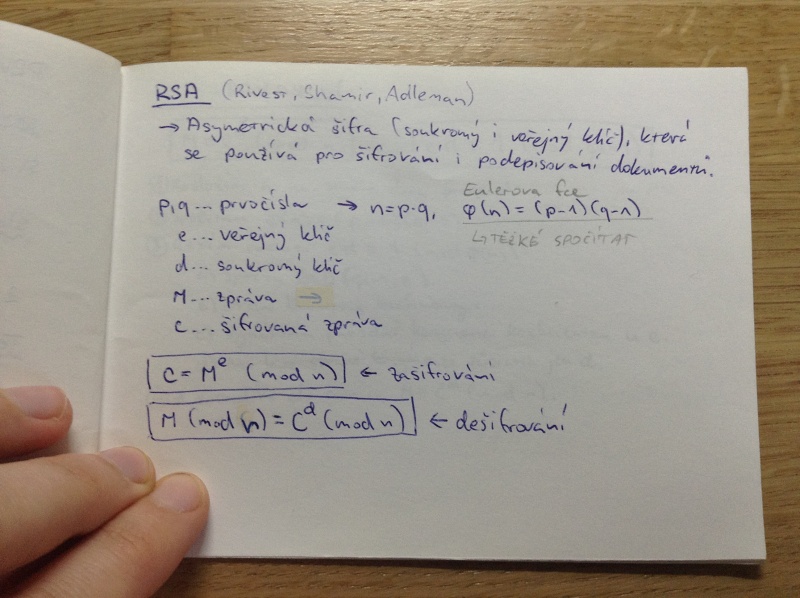 RSA (Rivest, Shamir, Adleman)
→ Asymetrická šifra (soukromý i veřejný klíč), která
se používá pro šifrování i podepisování dokumentů.
Eulerova fce
p,q... prvočísla → n=p·q, φ(n)=(p-1)(q-1)
↳ TĚŽKÉ SPOČÍTAT
e... veřejný klíč
d... soukromý klíč
M... zpráva →
C... šifrovaná zpráva
C = M^e (mod n) ← zašifrování
M (mod n) = C^d (mod n) ← dešifrování